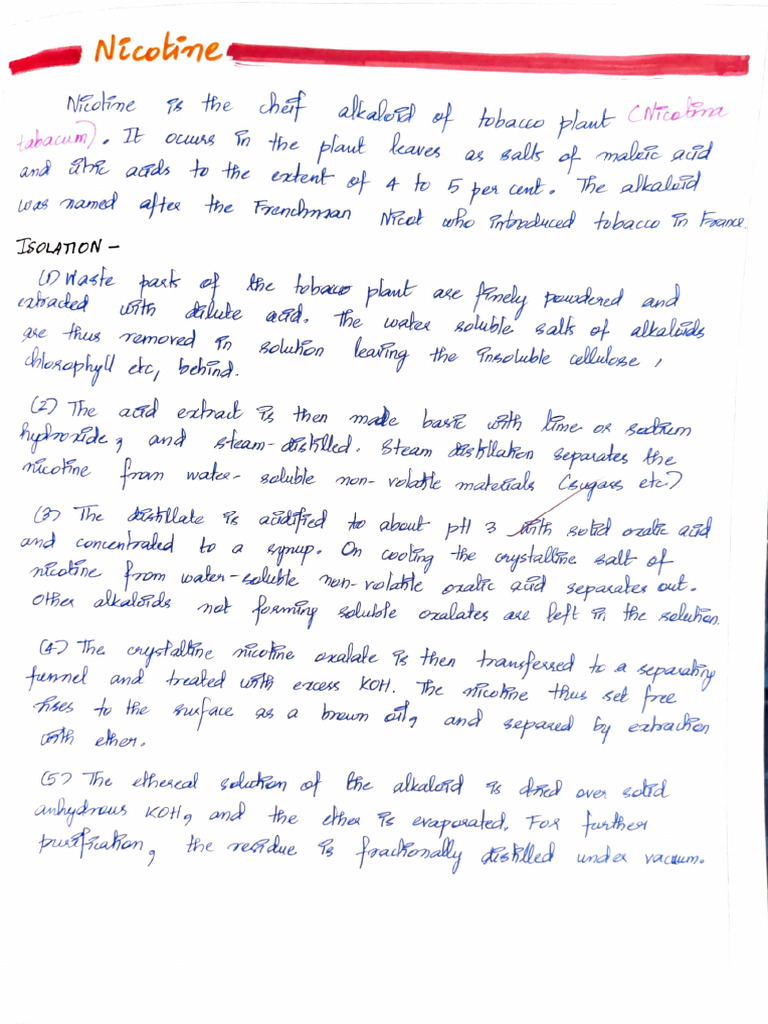 Nicotine
Nicotine is the cheif alkaloid of tobacco plant (Nicotina
tabacum). It occurs in the plant leaves as salts of maleic acid
and citric acids to the extent of 4 to 5 per cent. The alkaloid
was named after the Frenchman Nicot who introduced tobacco in France.
ISOLATION -
(1) Waste parts of the tobacco plant are finely powdered and
extracted with dilute acid. The water soluble salts of alkaloids
are thus removed in solution leaving the insoluble cellulose,
chlorophyll etc, behind.
(2) The acid extract is then made basic with lime or sodium
hydroxide, and steam-distilled. Steam distillation separates the
nicotine from water-soluble non-volatile materials (sugars etc.)
(3) The distillate is acidified to about pH 3 with solid oxalic acid
and concentrated to a syrup. On cooling the crystalline salt of
nicotine from water-soluble non-volatile oxalic acid separates out.
Other alkaloids not forming soluble oxalates are left in the solution.
(4) The crystalline nicotine oxalate is then transferred to a separating
funnel and treated with excess KOH. The nicotine thus set free
rises to the surface as a brown oil, and separed by extraction
with ether.
(5) The ethereal solution of the alkaloid is dried over solid
anhydrous KOH, and the ether is evaporated. For further
purification, the residue is fractionally distilled under vacuum.